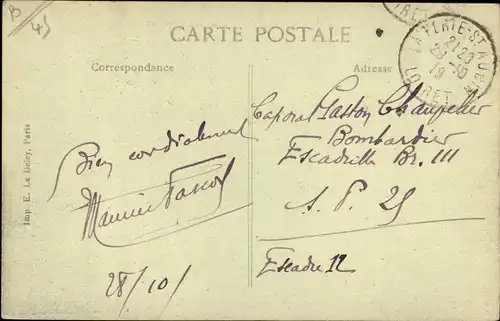 B
45
CARTE POSTALE
Correspondance
Adresse
LA FERTE-ST AUBIN
21 20
28-10
19
LOIRET
Caporal Gaston Chaupelier
Bombardier
Escadrille Br. 111
S. P. 25
Escadre 12
Bien cordialement
Maurice
28/10/
Imp. E. Le Deley, Paris